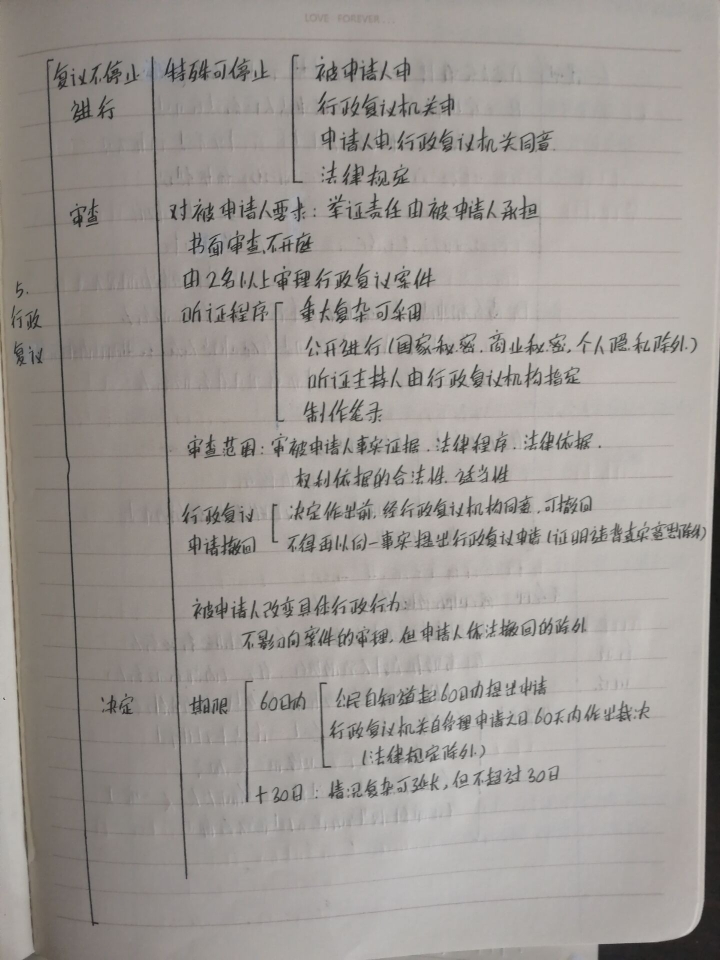 LOVE FOREVER...
复议不停止 特殊可停止 被申请人申
进行 行政复议机关申
申请人申,行政复议机关同意.
法律规定
审查 对被申请人要求:举证责任由被申请人承担
书面审查,不开庭
由2名以上审理行政复议案件
5.
行政
复议
听证程序 重大复杂可采用
公开进行(国家秘密.商业秘密,个人隐私除外.)
听证主持人由行政复议机构指定
制作笔录
审查范围:审被申请人事实证据.法律程序.法律依据.
权利依据的合法性.适当性
行政复议 决定作出前.经行政复议机构同意.可撤回
申请撤回 不得再以同一事实提出行政复议申请(证明违背真实意思除外)
被申请人改变具体行政行为:
不影响案件的审理.但申请人依法撤回的除外
决定 期限 60日内 公民自知道起60日内提出申请
行政复议机关自受理申请之日60天内作出裁决
(法律规定除外.)
+30日:情况复杂可延长,但不超过30日